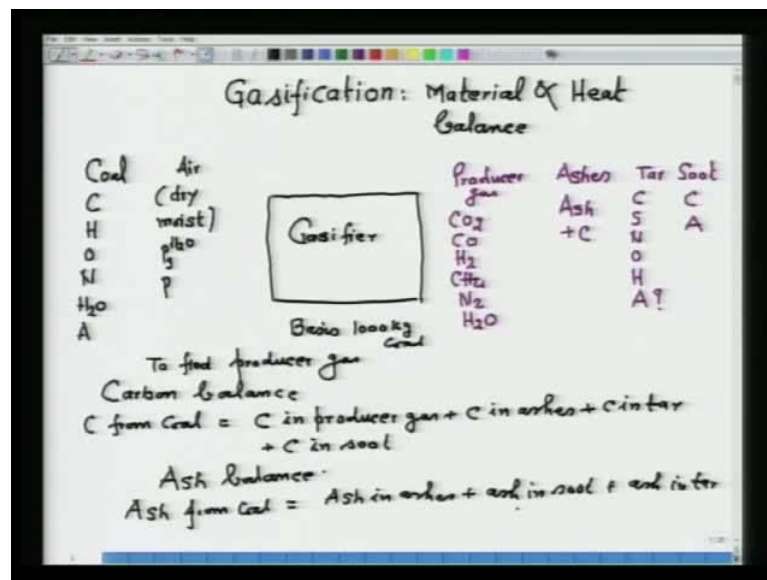 Gasification: Material & Heat
balance
Coal
C
H
O
N
H2O
A
Air
(dry
moist)
P
Gasifier
Basis 1000kg
Coal
Producer
gas
CO2
CO
H2
CH4
N2
H2O
Ashes
Ash
+C
Tar
C
S
N
O
H
A?
Soot
C
A
To find producer gas
Carbon balance
C from Coal = C in producer gas + C in ashes + C in tar
+ C in soot
Ash balance.
Ash from Coal = Ash in ashes + ash in soot + ash in tar